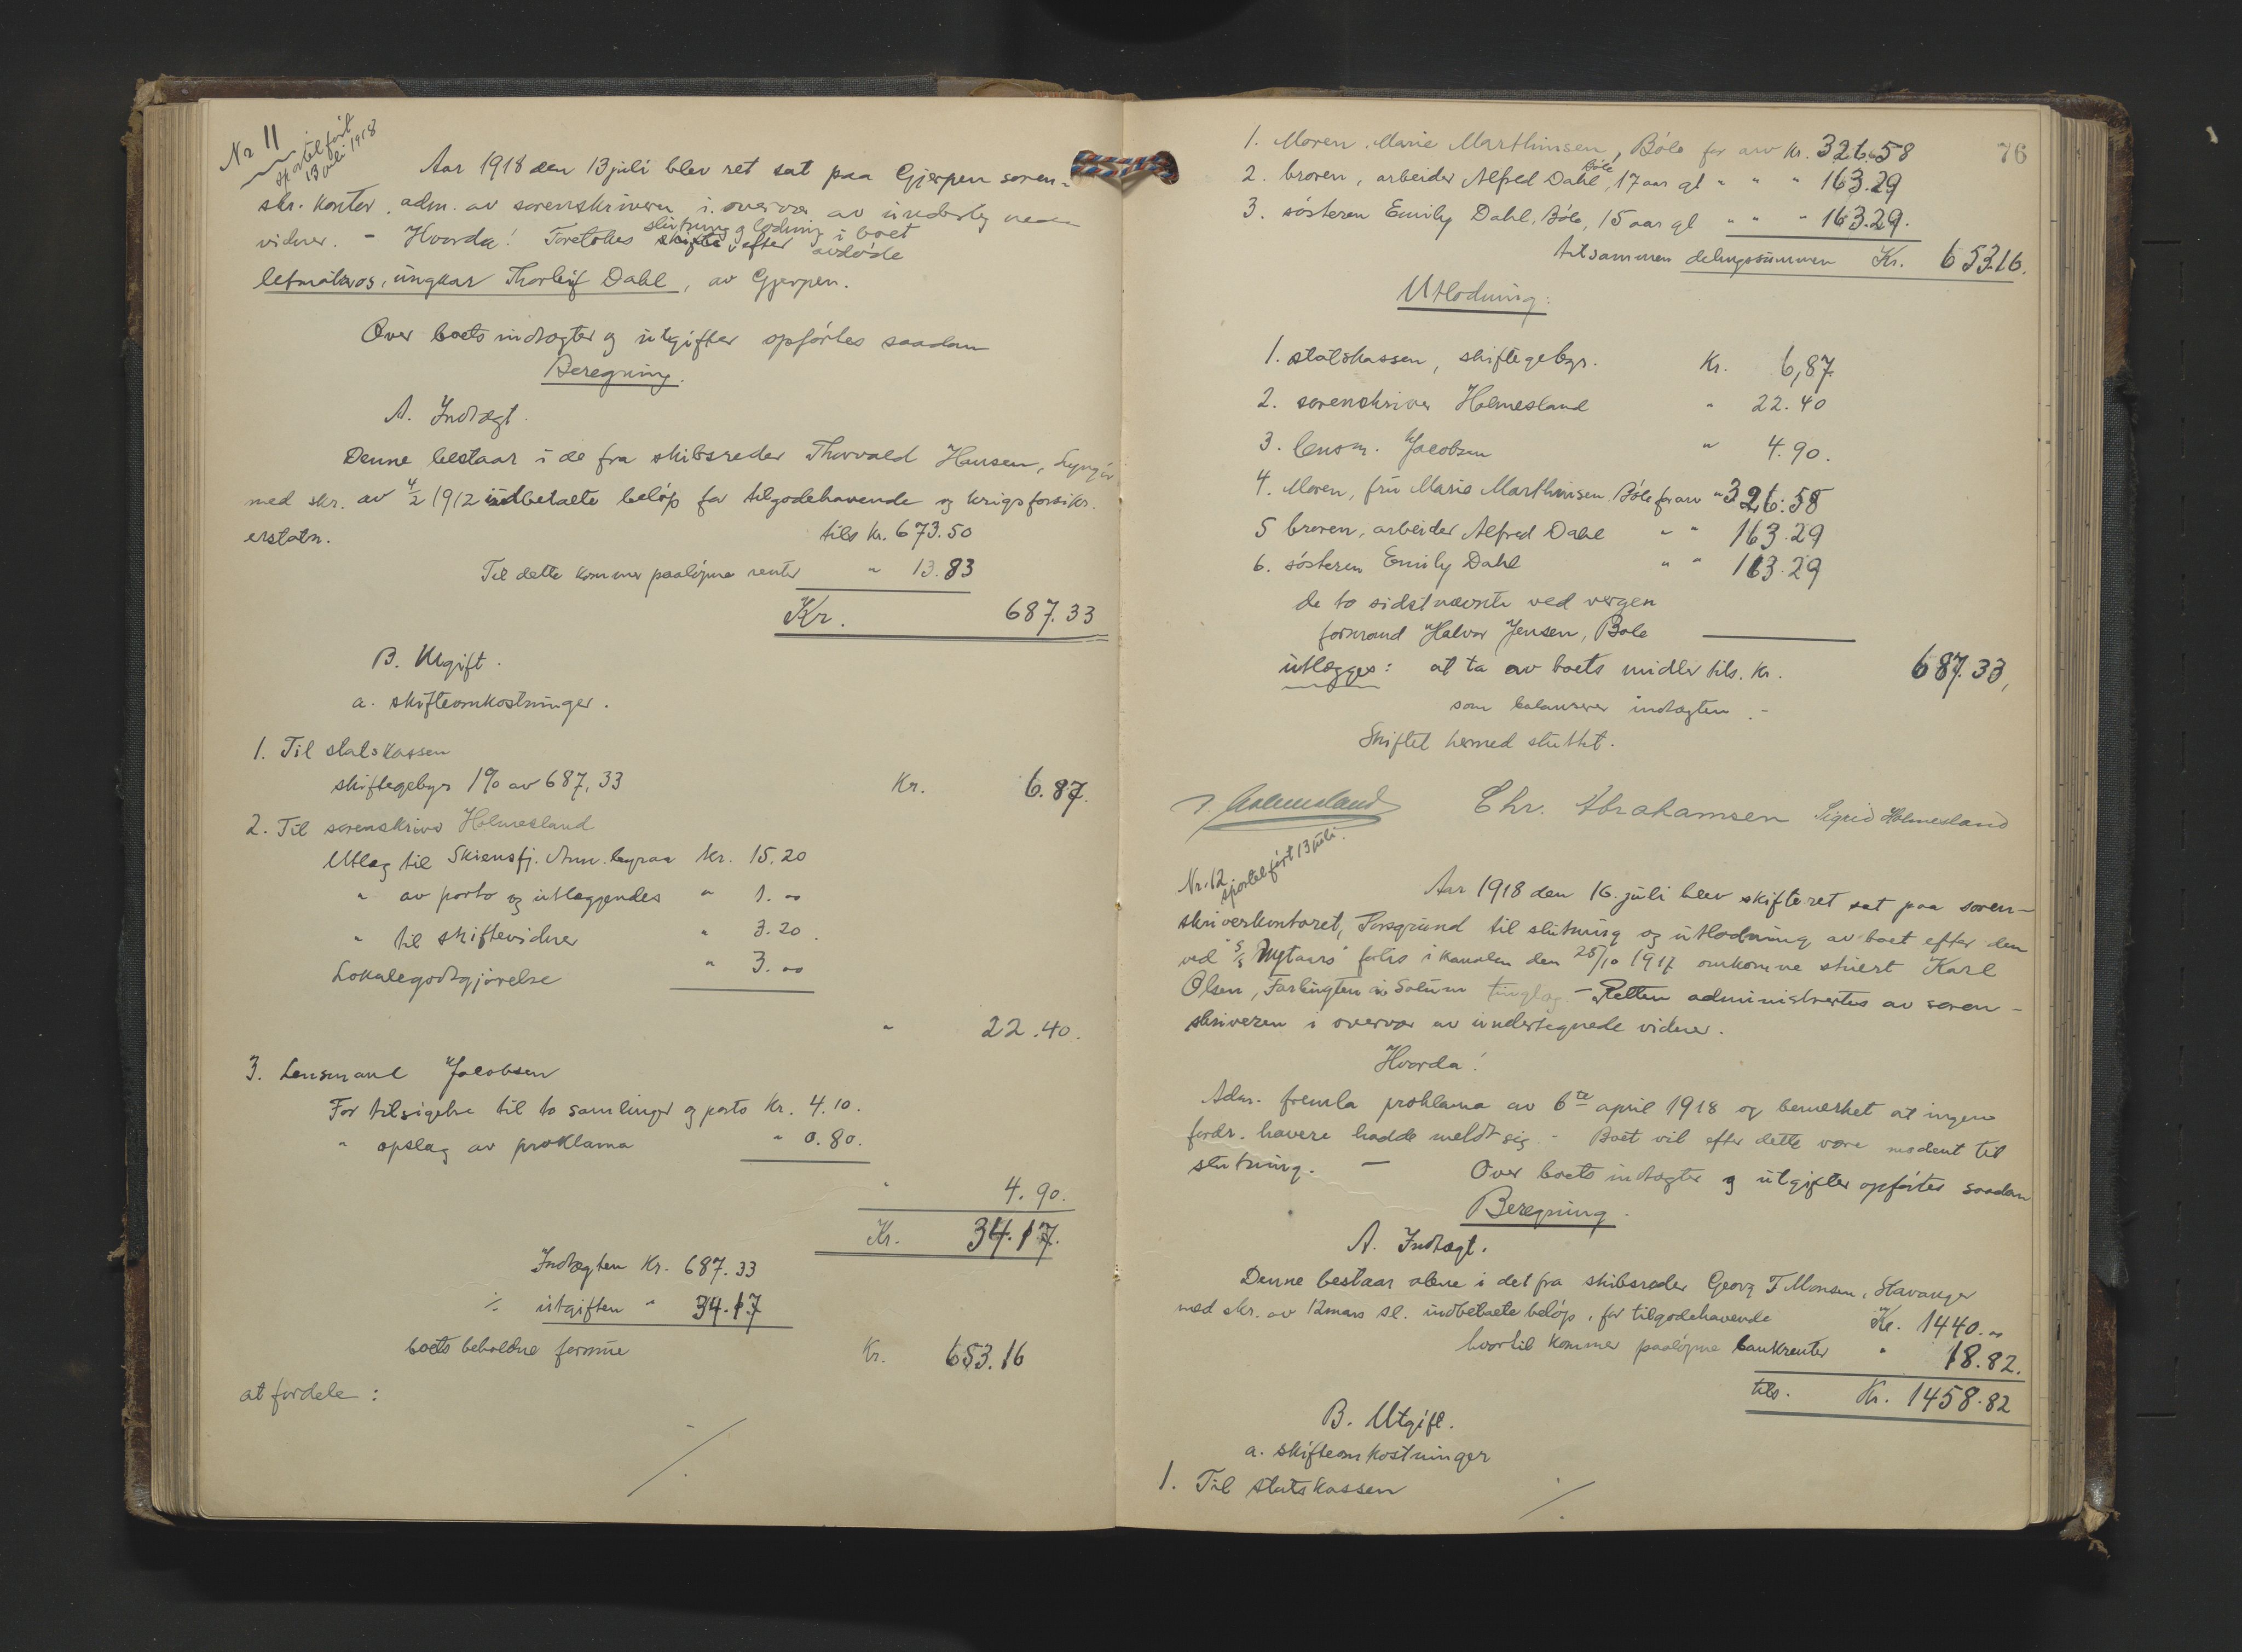 Nr 11
sportelført
13 juli 1918
Aar 1918 den 13 juli blev ret sat paa Gjerpen soren-
skr. kontor, adm. av sorenskriveren i overvær av undertegnede
vidner. - Hvorda! Foretokes slutning og lodning i boet
skifte efter avdøde
letmatros, ungkar Thorleif Dahl, av Gjerpen.
Over boets indtægter og utgifter opførtes saadan
Beregning.
A. Indtægt.
Denne bestaar i de fra skibsreder Thorvald Hansen, Lyngør
med skr. av 4/2 1912 indbetalte beløp for tilgodehavende og krigsforsikr.
erstatn. tils kr. 673.50
Til dette kommer paaløpne renter " 13.83
Kr. 687.33
B. Utgift.
a. skifteomkostninger.
1. Til statskassen
skiftegebyr 1% av 687,33 Kr. 6.87.
2. Til sorenskriver Holmesland
Utlæg til Skiensfj. Ann. byraa kr. 15.20
" av porto og utlæggendes " 1.00
" til skiftevidner " 3.20.
Lokalegodtgjørelse " 3.00
" 22.40.
3. Lensmand Jacobsen
For tilsigelse til to samlinger og porto Kr. 4.10.
" opslag av proklama " 0.80.
" 4.90.
Kr. 34.17.
Indtægten Kr. 687.33
÷ utgiften " 34.17
boets beholdne formue Kr. 653.16
at fordele:
76
1. Moren, Marie Marthinsen, Bøle for arv Kr. 326.58
2. broren, arbeider Alfred Dahl, Bøle, 17 aar gl " " " 163.29
3. søsteren Emily Dahl, Bøle, 15 aar gl " " " 163.29.
tilsammen delingssummen Kr. 653.16.
Utlodning:
1. statskassen, skiftegebyr. Kr. 6,87
2. sorenskriver Holmesland " 22.40
3. lensm. Jacobsen " 4.90.
4. Moren, fru Marie Marthinsen Bøle for arv " 326.58
5 broren, arbeider Alfred Dahl " " 163.29
6. søsteren Emily Dahl " " 163.29
de to sidstnævnte ved vergen
formand Halvor Jensen, Bøle
utlægges: at ta av boets midler tils. Kr. 687.33,
som balanserer indtægten. -
Skiftet hermed sluttet.
Holmesland Chr. Abrahamsen Sigrid Holmesland
Nr. 12
sportelført 13 juli.
Aar 1918 den 16. juli blev skifteret sat paa soren-
skriverkontoret, Porsgrund til slutning og utlodning av boet efter den
ved S/S "Nytaar"s forlis i kanalen den 25/10 1917 omkomne stuert Karl
Olsen, i Solum tinglag. - Retten administrertes av soren-
skriveren i overvær av undertegnede vidner.
Hvorda!
Adm. fremla proklama av 6te april 1918 og bemerket at ingen
fordr. havere hadde meldt sig. - Boet vil efter dette være modent til
slutning. - Over boets indtægter og utgifter opførtes saadan
Beregning.
A. Indtægt.
Denne bestaar alene i det fra skibsreder Georg T Monsen, Stavanger
med skr. av 12 mars sl. indbetalte beløp, for tilgodehavende Kr. 1440.00
hvortil kommer paaløpne bankrenter " 18.82.
tils. Kr. 1458.82
B. Utgift.
a. skifteomkostninger
1. Til statskassen